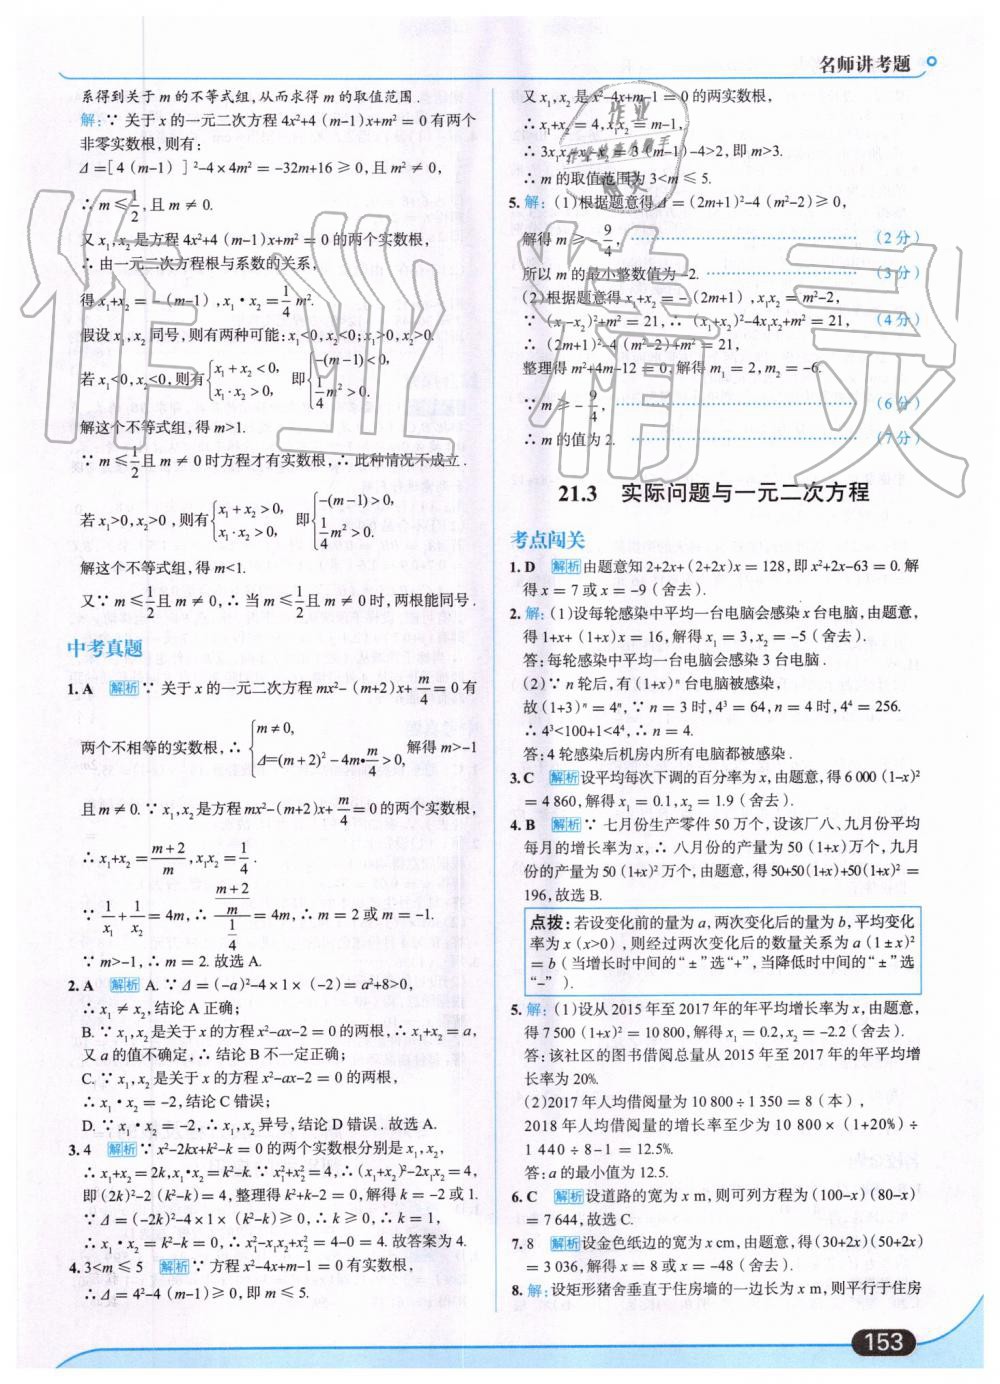 名师讲考题
系得到关于 m 的不等式组,从而求得 m 的取值范围.
解:∵ 关于 x 的一元二次方程 4x²+4(m-1)x+m²=0 有两个
非零实数根,则有:
Δ=[4(m-1)]²-4×4m²=-32m+16≥0,且 m²≠0,
∴ m≤1/2,且 m≠0.
又 x₁,x₂ 是方程 4x²+4(m-1)x+m²=0 的两个实数根,
∴ 由一元二次方程根与系数的关系,
得 x₁+x₂=-(m-1),x₁·x₂=1/4 m².
假设 x₁,x₂ 同号,则有两种可能:x₁<0,x₂<0;x₁>0,x₂>0.
若 x₁<0,x₂<0,则有{x₁+x₂<0, x₁·x₂>0, 即{-(m-1)<0, 1/4 m²>0.
解这个不等式组,得 m>1.
∵ m≤1/2且 m≠0 时方程才有实数根,∴ 此种情况不成立.
若 x₁>0,x₂>0,则有{x₁+x₂>0, x₁·x₂>0, 即{-(m-1)>0, 1/4 m²>0.
解这个不等式组,得 m<1.
又∵ m≤1/2且 m≠0,∴ 当 m≤1/2且 m≠0 时,两根能同号.
中考真题
1. A 解析 ∵ 关于 x 的一元二次方程 mx²-(m+2)x+m/4=0 有
两个不相等的实数根,∴{m≠0, Δ=(m+2)²-4m·m/4>0, 解得 m>-1
且 m≠0. ∵ x₁,x₂ 是方程 mx²-(m+2)x+m/4=0 的两个实数根,
∴ x₁+x₂=(m+2)/m,x₁x₂=1/4.
∵ 1/x₁+1/x₂=4m,∴ ((m+2)/m)/(1/4)=4m,∴ m=2 或 m=-1.
∵ m>-1,∴ m=2. 故选 A.
2. A 解析 A. ∵ Δ=(-a)²-4×1×(-2)=a²+8>0,
∴ x₁≠x₂,结论 A 正确;
B. ∵ x₁,x₂ 是关于 x 的方程 x²-ax-2=0 的两根,∴ x₁+x₂=a,
又 a 的值不确定,∴ 结论 B 不一定正确;
C. ∵ x₁,x₂ 是关于 x 的方程 x²-ax-2=0 的两根,
∴ x₁·x₂=-2,结论 C 错误;
D. ∵ x₁·x₂=-2,∴ x₁,x₂ 异号,结论 D 错误. 故选 A.
3. 4 解析 ∵ x²-2kx+k²-k=0 的两个实数根分别是 x₁,x₂,
∴ x₁+x₂=2k,x₁·x₂=k²-k. ∵ x₁²+x₂²=4,∴ (x₁+x₂)²-2x₁x₂=4,
即 (2k)²-2(k²-k)=4,整理得 k²+k-2=0,解得 k=-2 或 1.
∵ Δ=(-2k)²-4×1×(k²-k)≥0,∴ k≥0,∴ k=1,
∴ x₁·x₂=k²-k=0,∴ x₁²-x₁x₂+x₂²=4-0=4. 故答案为 4.
4. 3<m≤5 解析 ∵ 方程 x²-4x+m-1=0 有实数根,
∴ Δ=4²-4(m-1)≥0,即 m≤5.
又 x₁,x₂ 是 x²-4x+m-1=0 的两实数根,
∴ x₁+x₂=4,x₁x₂=m-1,
∴ 3x₁x₂-x₁-x₂=3(m-1)-4>2,即 m>3.
∴ m 的取值范围为 3<m≤5.
5. 解:(1)根据题意得 Δ=(2m+1)²-4(m²-2)≥0,
解得 m≥-9/4, (2分)
所以 m 的最小整数值为-2. (3分)
(2)根据题意得 x₁+x₂=-(2m+1),x₁x₂=m²-2,
∵ (x₁-x₂)²+m²=21,∴ (x₁+x₂)²-4x₁x₂+m²=21, (4分)
∴ (2m+1)²-4(m²-2)+m²=21,
整理得 m²+4m-12=0,解得 m₁=2,m₂=-6.
∵ m≥-9/4, (6分)
∴ m 的值为 2. (7分)
21.3 实际问题与一元二次方程
考点闯关
1. D 解析 由题意知 2+2x+(2+2x)x=128,即 x²+2x-63=0. 解
得 x=7 或 x=-9(舍去).
2. 解:(1)设每轮感染中平均一台电脑会感染 x 台电脑,由题意,
得 1+x+(1+x)x=16,解得 x₁=3,x₂=-5(舍去).
答:每轮感染中平均一台电脑会感染 3 台电脑.
(2)∵ n 轮后,有 (1+x)ⁿ 台电脑被感染,
故 (1+3)ⁿ=4ⁿ,∵ n=3 时,4³=64,n=4 时,4⁴=256.
∴ 4³<100+1<4⁴,∴ n=4.
答:4 轮感染后机房内所有电脑都被感染.
3. C 解析 设平均每次下调的百分率为 x,由题意,得 6 000(1-x)²
=4 860,解得 x₁=0.1,x₂=1.9(舍去).
4. B 解析 ∵ 七月份生产零件 50 万个,设该厂八、九月份平均
每月的增长率为 x,∴ 八月份的产量为 50(1+x)万个,九月
份的产量为 50(1+x)²万个,由题意,得 50+50(1+x)+50(1+x)²=
196,故选 B.
点拨:若设变化前的量为 a,两次变化后的量为 b,平均变化
率为 x(x>0),则经过两次变化后的数量关系为 a(1±x)²
=b(当增长时中间的“±”选“+”,当降低时中间的“±”选
“-”).
5. 解:(1)设从 2015 年至 2017 年的年平均增长率为 x,由题意,
得 7 500(1+x)²=10 800,解得 x₁=0.2,x₂=-2.2(舍去).
答:该社区的图书借阅总量从 2015 年至 2017 年的年平均增
长率为 20%.
(2)2017 年人均借阅量为 10 800÷1 350=8(本),
2018 年人均借阅量的增长率至少为 10 800×(1+20%)÷
1 440÷8-1=12.5%.
答:a 的最小值为 12.5.
6. C 解析 设道路的宽为 x m,则可列方程为 (100-x)(80-x)
=7 644,故选 C.
7. 8 解析 设金色纸边的宽为 x cm,由题意,得 (30+2x)(50+2x)
=3 036,解得 x=8 或 x=-48(舍去).
8. 解:设矩形猪舍垂直于住房墙的一边长为 x m,则平行于住房
153
作业精灵